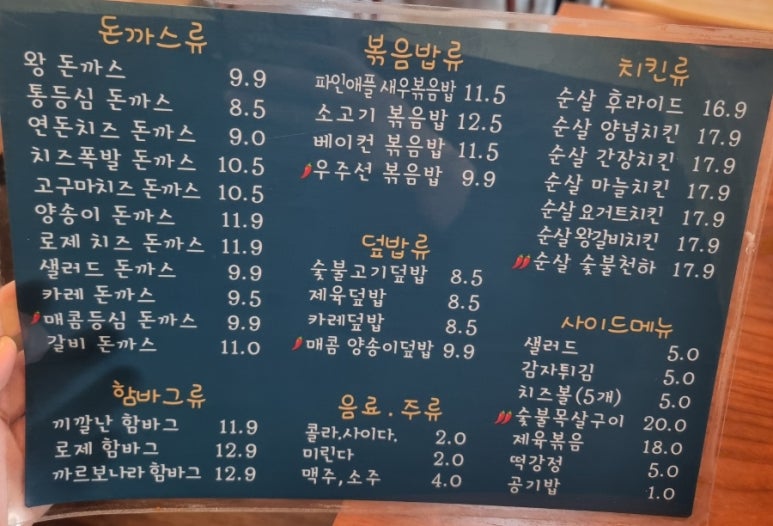 돈까스류
왕 돈까스 9.9
통등심 돈까스 8.5
연돈치즈 돈까스 9.0
치즈폭발 돈까스 10.5
고구마치즈 돈까스 10.5
양송이 돈까스 11.9
로제 치즈 돈까스 11.9
샐러드 돈까스 9.9
카레 돈까스 9.5
매콤등심 돈까스 9.9
갈비 돈까스 11.0
함바그류
끼깔난 함바그 11.9
로제 함바그 12.9
까르보나라 함바그 12.9
볶음밥류
파인애플 새우볶음밥 11.5
소고기 볶음밥 12.5
베이컨 볶음밥 11.5
우주선 볶음밥 9.9
덮밥류
숯불고기덮밥 8.5
제육덮밥 8.5
카레덮밥 8.5
매콤 양송이덮밥 9.9
음료.주류
콜라.사이다. 2.0
미린다 2.0
맥주,소주 4.0
치킨류
순살 후라이드 16.9
순살 양념치킨 17.9
순살 간장치킨 17.9
순살 마늘치킨 17.9
순살 요거트치킨 17.9
순살 왕갈비치킨 17.9
순살 숯불천하 17.9
사이드메뉴
샐러드 5.0
감자튀김 5.0
치즈볼(5개) 5.0
숯불목살구이 20.0
제육볶음 18.0
떡강정 5.0
공기밥 1.0